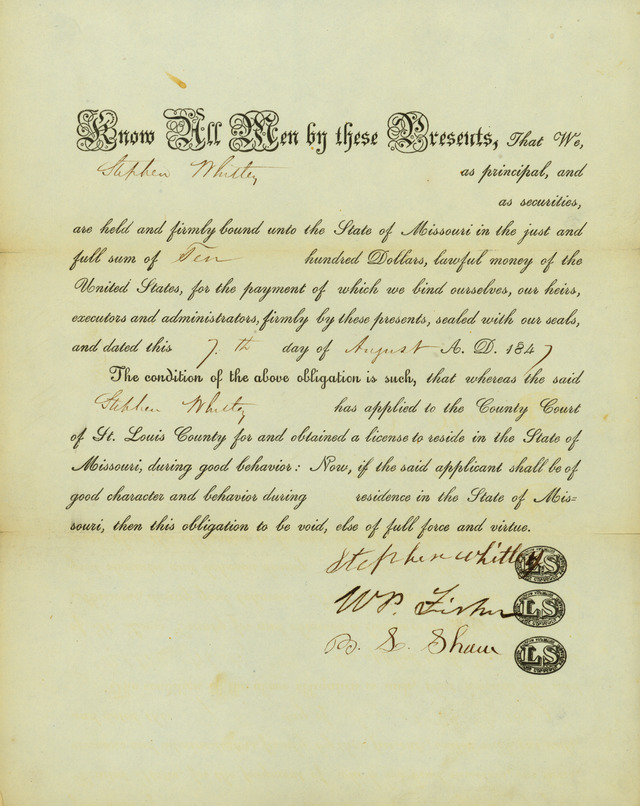 Know All Men by these Presents, That We,
Stephen Whitley as principal, and
as securities,
are held and firmly bound unto the State of Missouri in the just and
full sum of Ten hundred Dollars, lawful money of the
United States, for the payment of which we bind ourselves, our heirs,
executors and administrators, firmly by these presents, sealed with our seals,
and dated this 7.th day of August A. D. 1847
The condition of the above obligation is such, that whereas the said
Stephen Whitley has applied to the County Court
of St. Louis County for and obtained a license to reside in the State of
Missouri, during good behavior: Now, if the said applicant shall be of
good character and behavior during residence in the State of Mis=
souri, then this obligation to be void, else of full force and virtue.
Stephen Whitley LS
W P. Fisher LS
B. L. Shaw LS